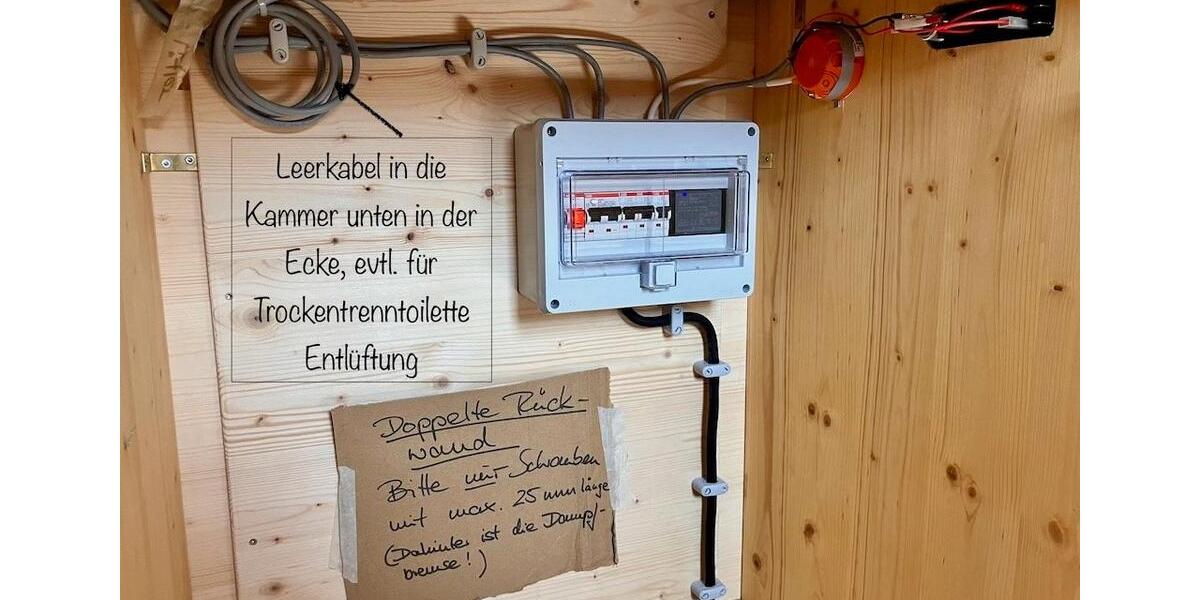 Leerkabel in die
Kammer unten in der
Ecke, evtl. für
Trockentrenntoilette
Entlüftung
Doppelte Rück-
wand
Bitte nur Schrauben
mit max. 25 mm länge
(Dahinter ist die Dampf-
bremse!)